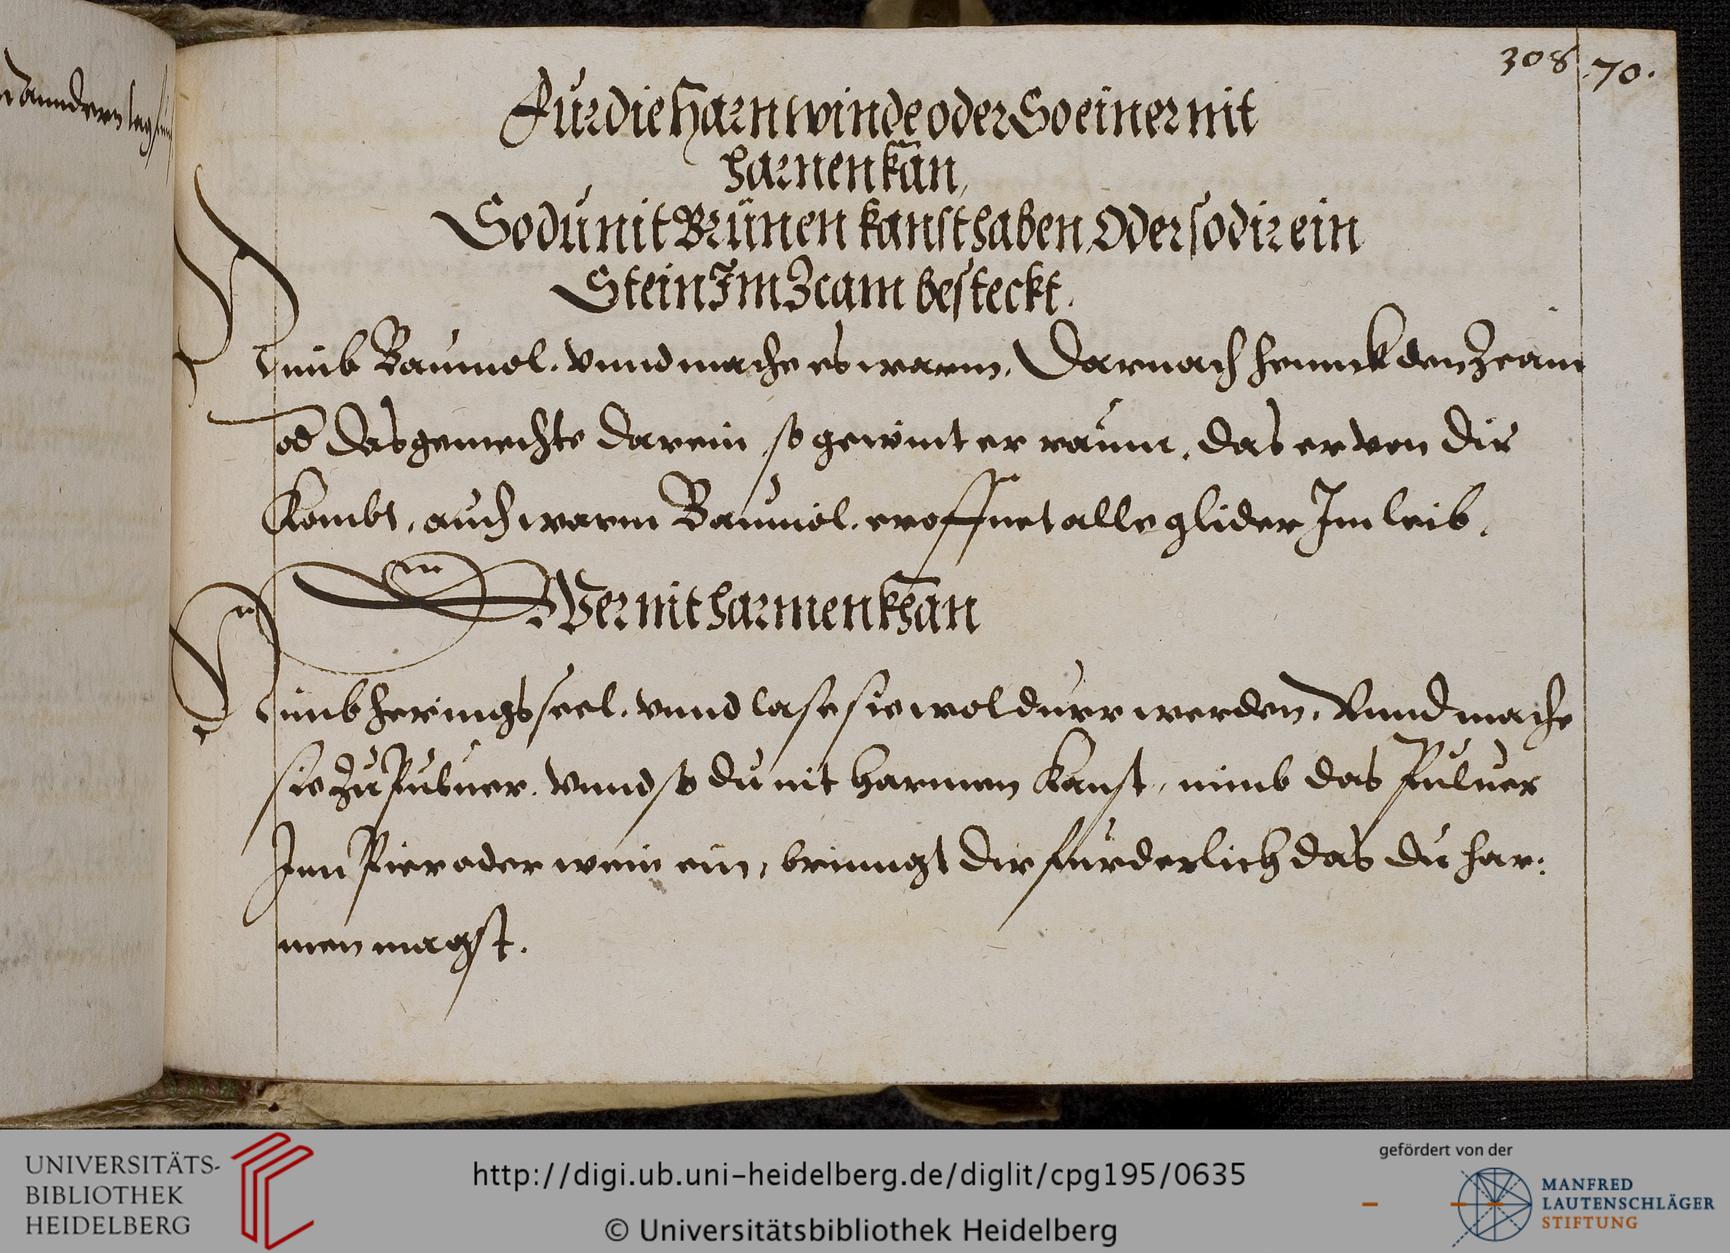 308 70.
Für die Harnwinde oder So einer nit
harnen kān,
So du nit Brünnen kanst haben, Oder so dir ein
Stein Im Zcam besteckt.
Nimb Baumol. vnnd mache es warm, Darnach hennck den Zcam
od das gemechte darein so gewint er raum, das er von dir
Kombt, auch warm Baumöl. eroffnet alle glider Im leib,
Wer nit harmen khan
Nimb herings seel. vnnd lase sie wol durr werden, Vnnd mache
sie zu Puluer. vnnd so du nit harmen kanst, nimb das Puluer
Inn Pier oder wein ein, brinngt dir fürderlich das du har:
men magst.
anndern tag
UNIVERSITÄTS-
BIBLIOTHEK
HEIDELBERG
http://digi.ub.uni-heidelberg.de/diglit/cpg195/0635
© Universitätsbibliothek Heidelberg
gefördert von der
MANFRED
LAUTENSCHLÄGER
STIFTUNG